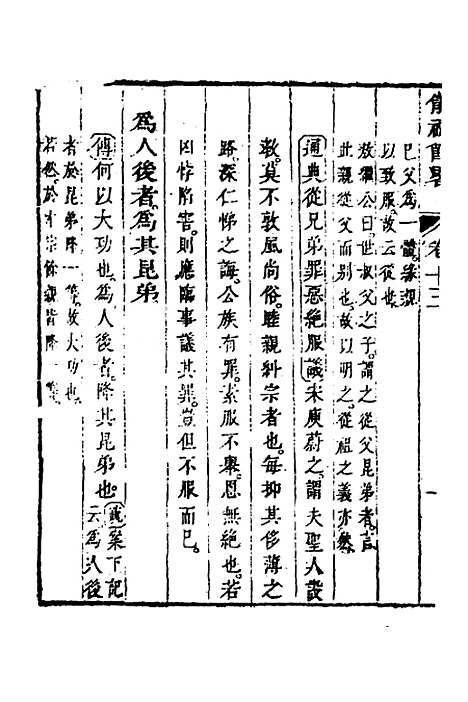 儀禮節畧 卷十三
巳父為一體緣親
以致服故云從也
敖繼公曰世叔父之子謂之從父昆弟者言
此親從父而別也故以明之從祖之義亦然
通典從兄弟罪惡絶服議宋庾蔚之謂夫聖人設
教莫不敦風尚俗睦親糾宗者也每抑其侈薄之
路深仁悌之誨公族有罪素服不舉恩無絶也若
凶悖陷害則應臨事議其罪豈但不服而已
為人後者為其昆弟
傳何以大功也為人後者降其昆弟也 案下記
云為人後
者於昆弟降一等故大功也
若然於本宗餘親皆降一等